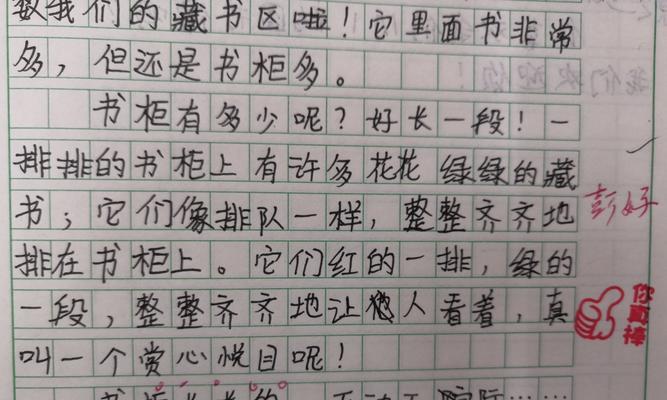 数我们的藏书区啦！它里面书非常
多，但还是书柜多。
书柜有多少呢？好长一段！一
排排的书柜上有许多花花绿绿的藏
书；它们像排队一样，整整齐齐地
彭好
排在书柜上。它们红的一排，绿的
一段，整整齐齐地让他人看着，真
你真棒
叫一个赏心悦目呢！